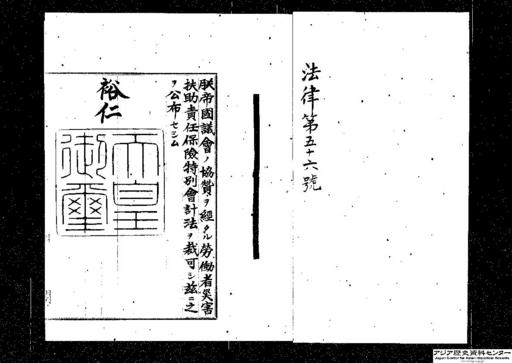 法律第五十六號
朕帝國議會ノ協賛ヲ經タル勞働者災害
扶助責任保險特別會計法ヲ裁可シ茲ニ之
ヲ公布セシム
裕仁
天皇
御璽
アジア歴史資料センター
Japan Center for Asian Historical Records